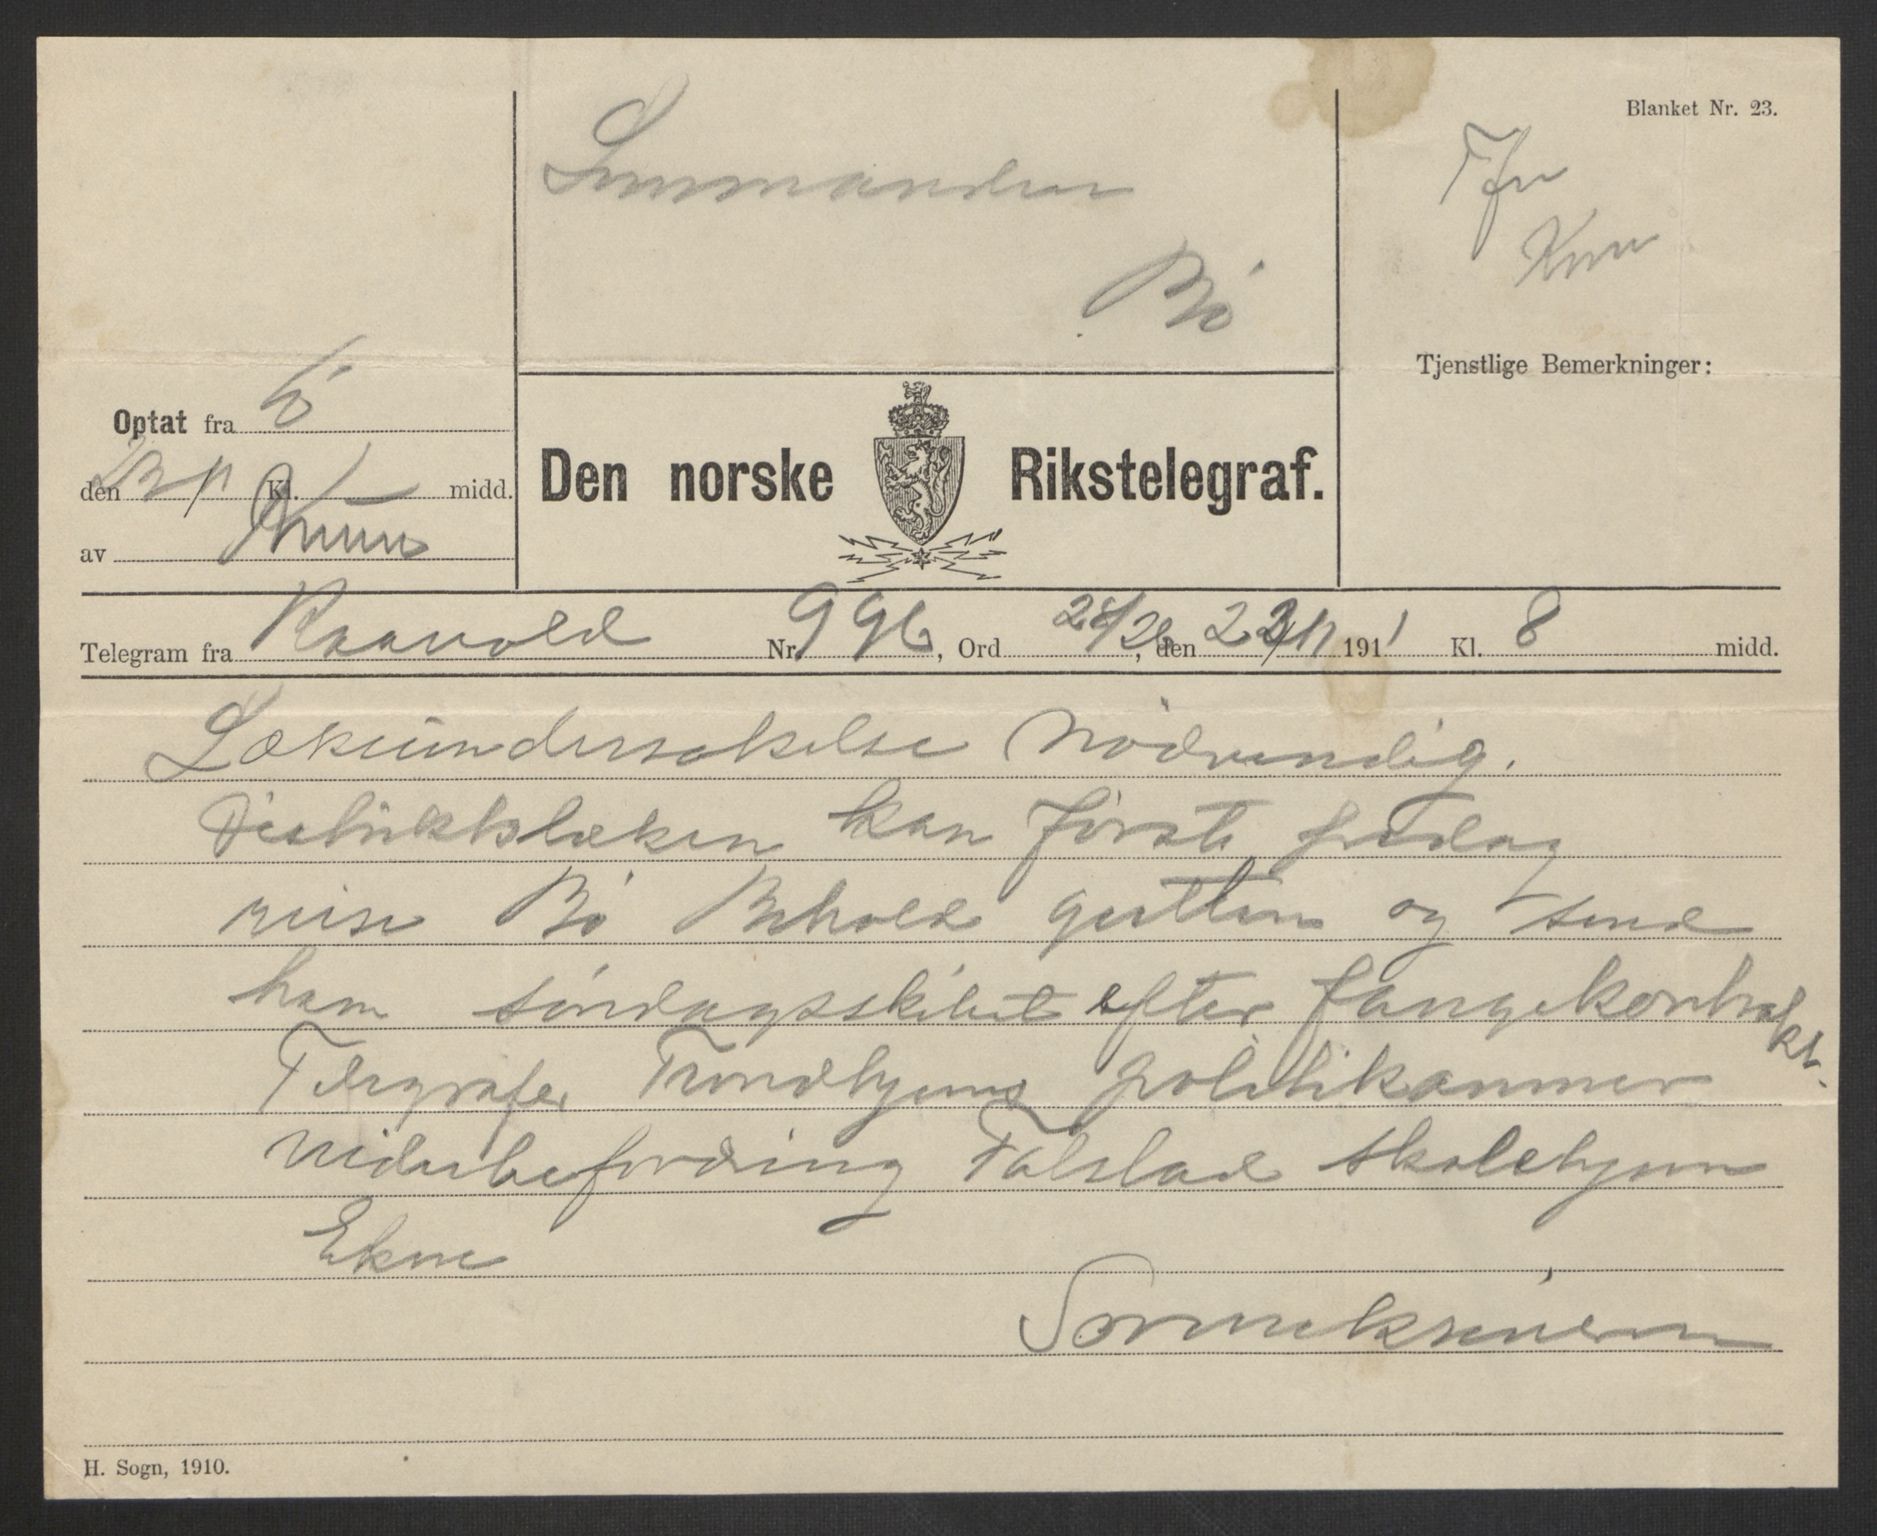 Blanket Nr. 23.
Lensmanden
Bø
Tjenstlige Bemerkninger:
Optat fra
den 23/11 Kl. midd.
av
Den norske Rikstelegraf.
Telegram fra Raavold Nr. 996, Ord 28/26, den 23/11 1911 Kl. 8 midd.
Lækeundersøkelse nødvendig.
Distriktslæken kan først fredag
reise Bø Behold gutten og send
ham søndagsskibet efter fangekontrakt.
Telegrafer Trondhjems politikammer
viderbefordring Falstad skolehjem
Ekne
Sorenskriveren
H. Sogn, 1910.